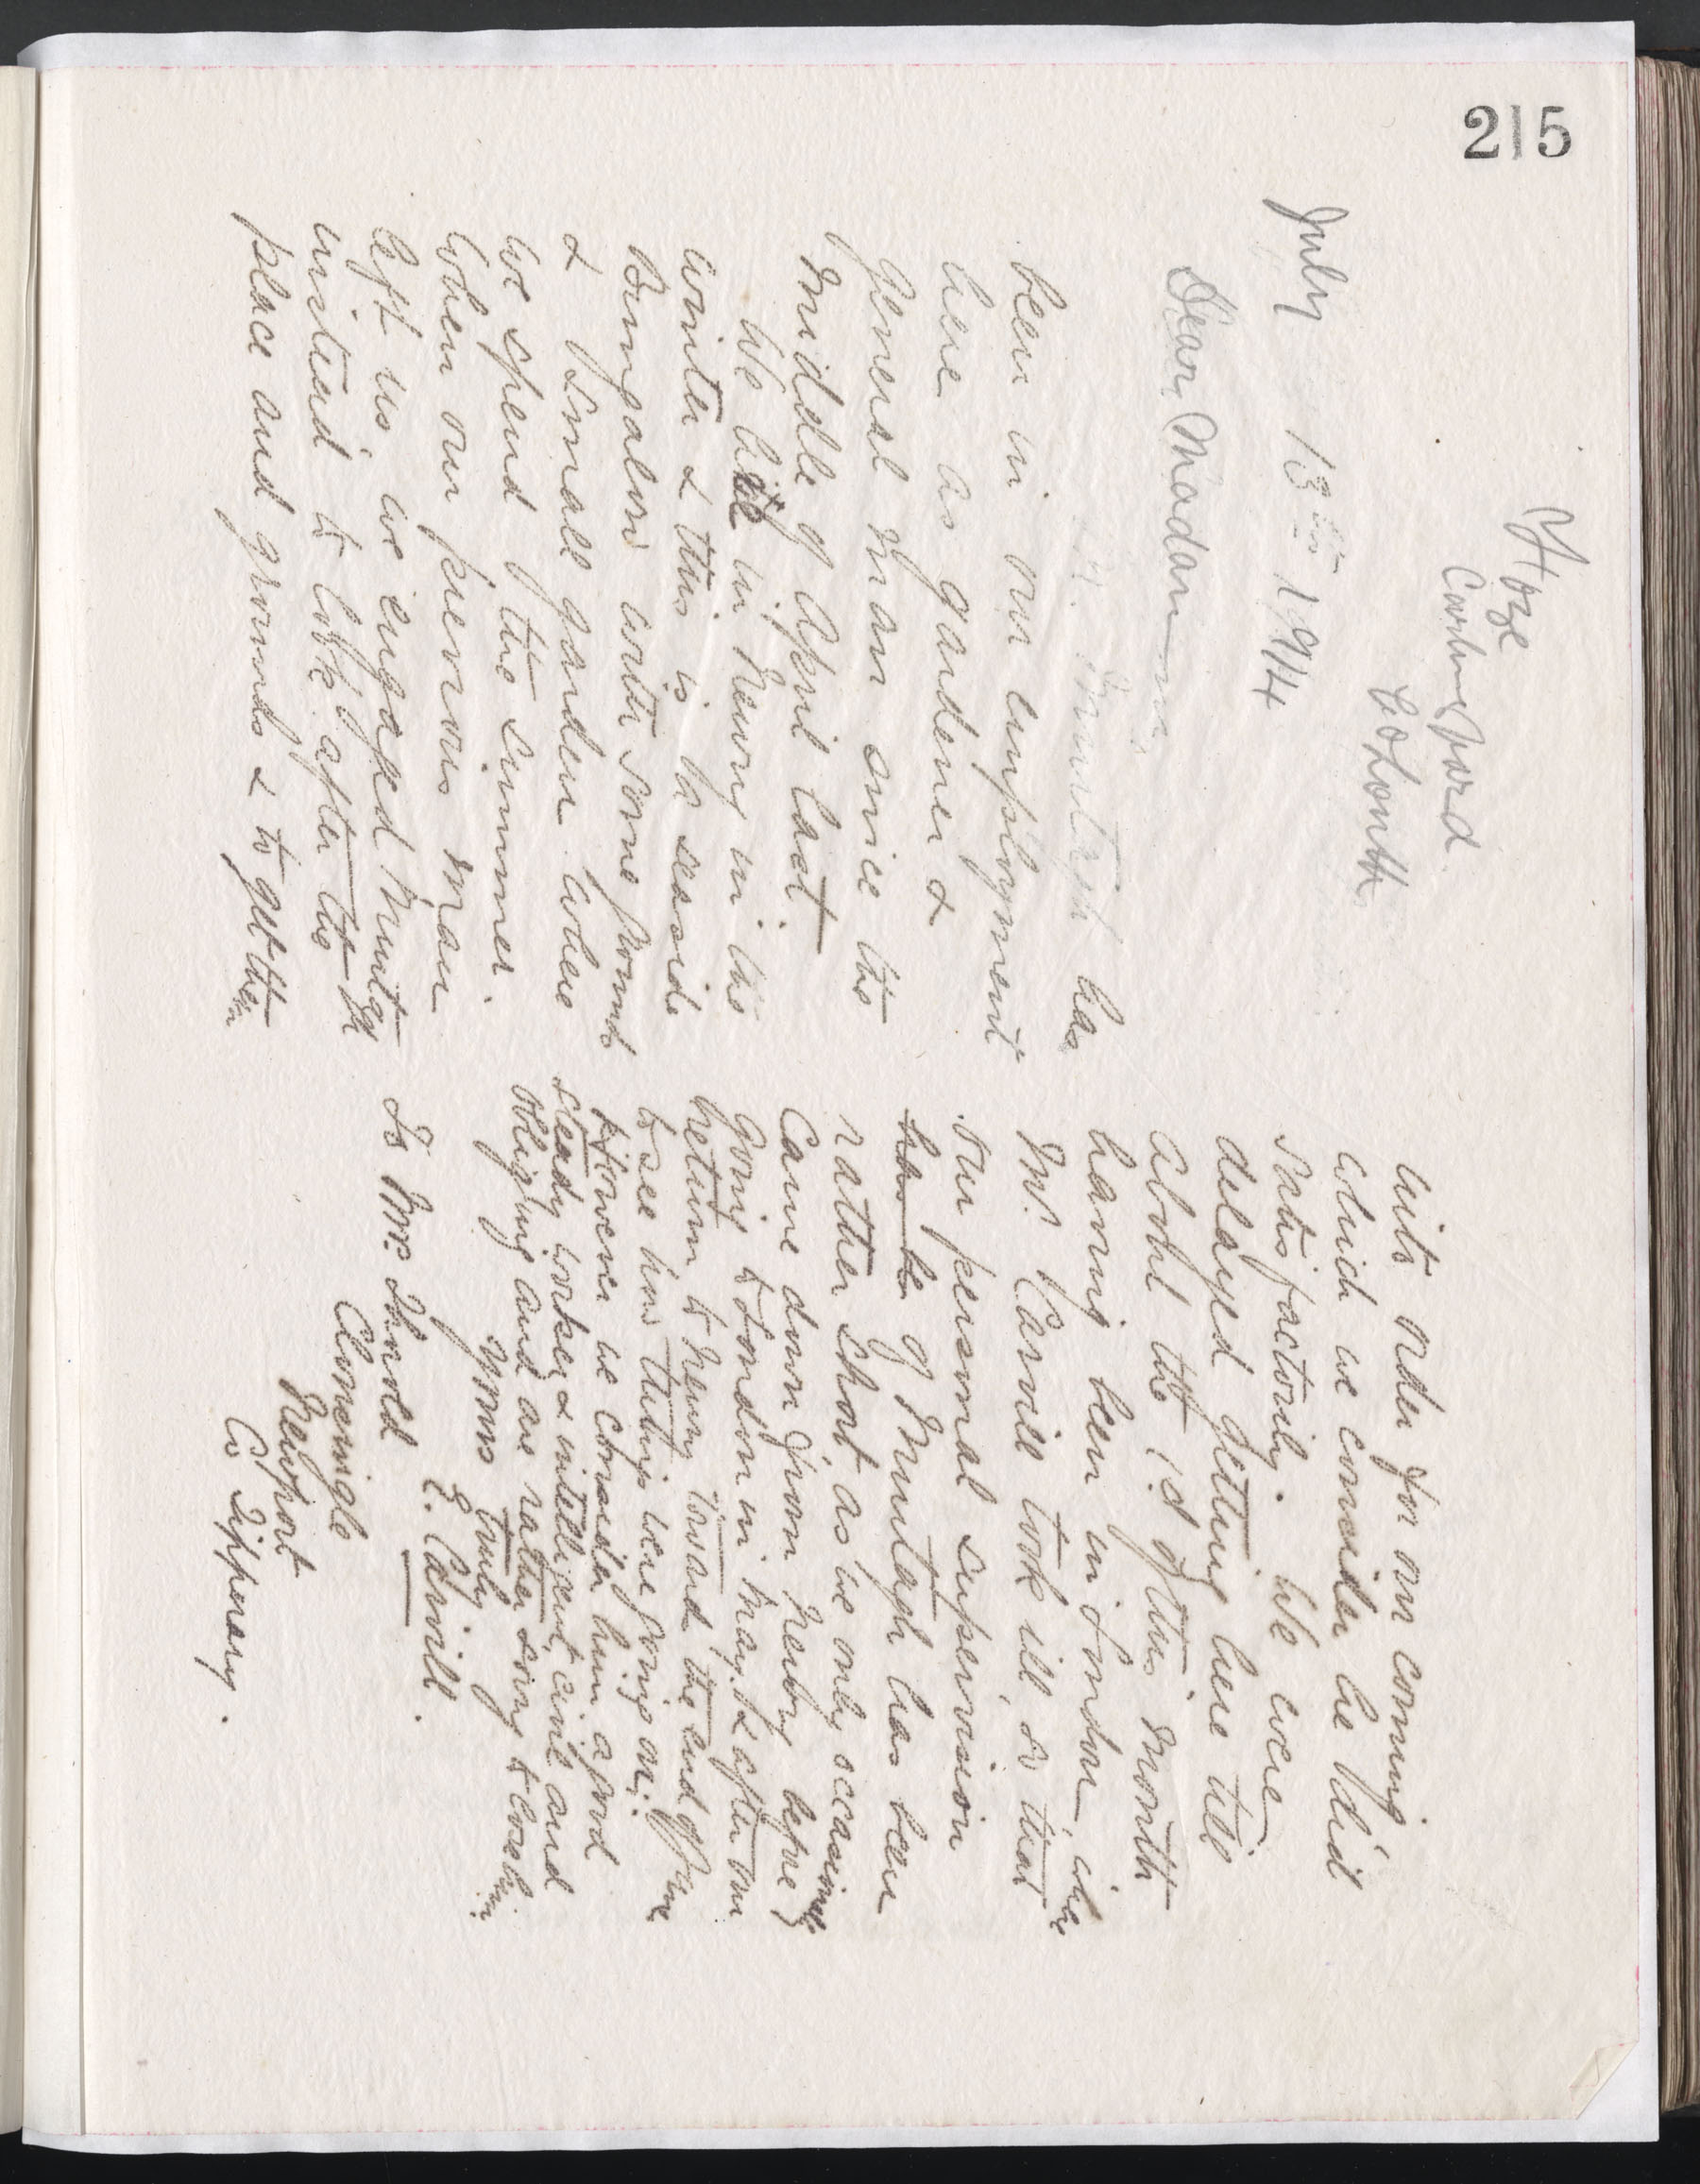 215
Carlingford
Co Louth
July 13th 1914
Dear Madam
Murtagh has
been in our employment
here as gardener &
general man since the
middle of April last.
We live in Newry in the
winter & this is a seaside
Bungalow with some ground
& small garden where
we spend the summer.
When our previous man
left us, we engaged Murtagh
instead to look after the
place and grounds & to get them
into order for our coming
which we consider he did
satisfactorily. We were
delayed getting here till
about the 1st of this month
having been in London, where
Mr. Carvill took ill, so that
our personal supervision
of Murtagh has been
rather short, as we only occasionally
came down from Newry before
going to London in May & after our
return to Newry toward the end of June
to see how things were going on.
However we consider him a good
steady worker & intelligent, civil and
obliging and are rather sorry to lose him.
Yours truly
E. Carvill.
To Mrs.
Newport
Co Tipperary.